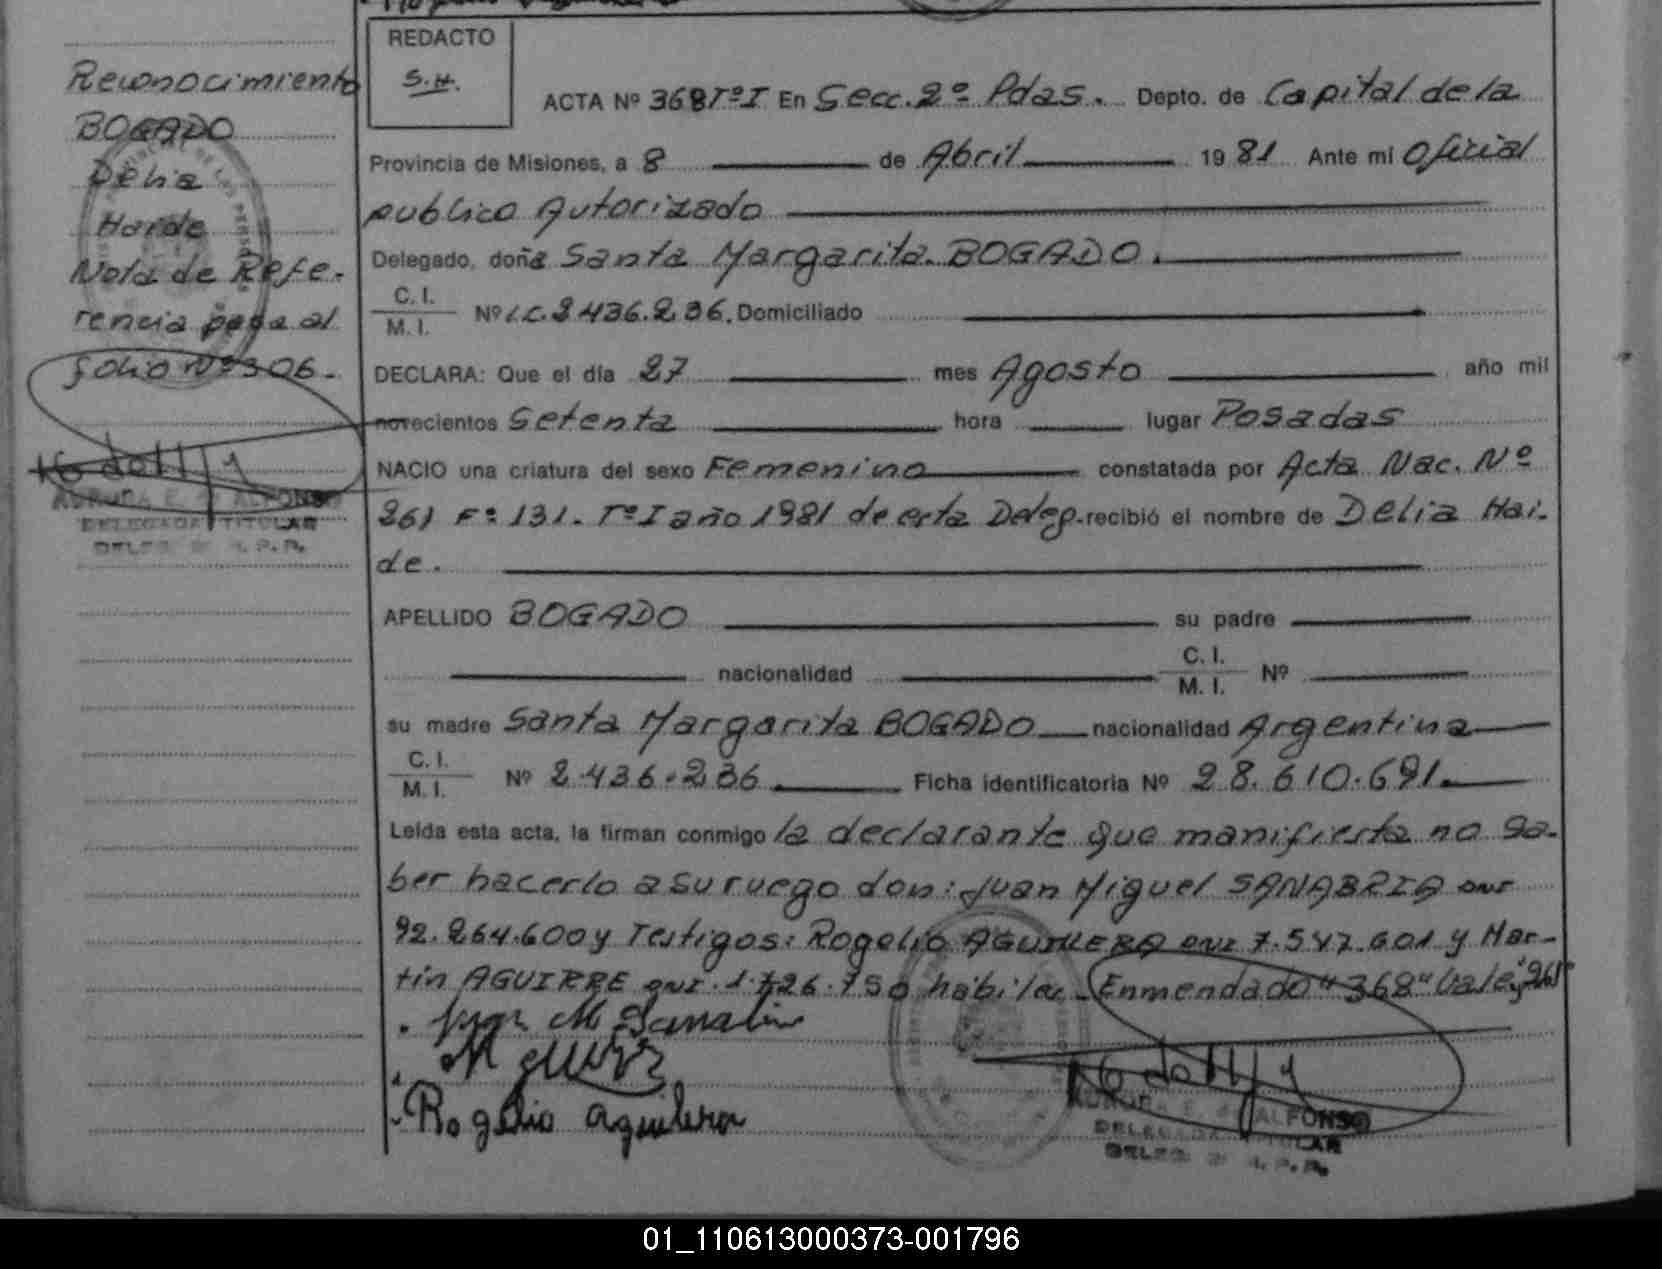 REDACTO
S.H.
Reconocimiento
BOGADO
Delia
Haide
Nota de Refe-
rencia pasa al
folio Nº 306.
AURORA E. ALFONSO
DELEGADA TITULAR
DELEG 2ª R.P.P.
ACTA Nº 368 TºI En Secc. 2º Pdas. Depto. de Capital de la
Provincia de Misiones, a 8 de Abril 1981 Ante mi Oficial
publico Autorizado
Delegado, doña Santa Margarita BOGADO.
C. I.
M. I. Nº L.C. 2.436.236. Domiciliado
DECLARA: Que el día 27 mes Agosto año mil
novecientos Setenta hora lugar Posadas
NACIO una criatura del sexo Femenino constatada por Acta Nac. Nº
261 Fº 131. TºI año 1981 de esta Deleg. recibió el nombre de Delia Hai-
de.
APELLIDO BOGADO su padre
nacionalidad C. I.
M. I. Nº
su madre Santa Margarita BOGADO nacionalidad Argentina
C. I.
M. I. Nº 2.436.236 Ficha identificatoria Nº 28.610.691.
Leída esta acta, la firman conmigo la declarante que manifiesta no sa-
ber hacerlo a su ruego don: Juan Miguel SANABRIA
92.264.600 y Testigos: Rogelio AGUILERA 7.547.601 y Mar-
tin AGUIRRE 1.726.750 habiles. Enmendado "368" Vale y "261"
Juan M Sanabria
Rogelio aguilera
AURORA E. ALFONSO
DELEGADA TITULAR
DELEG 2ª R.P.P.
01_110613000373-001796